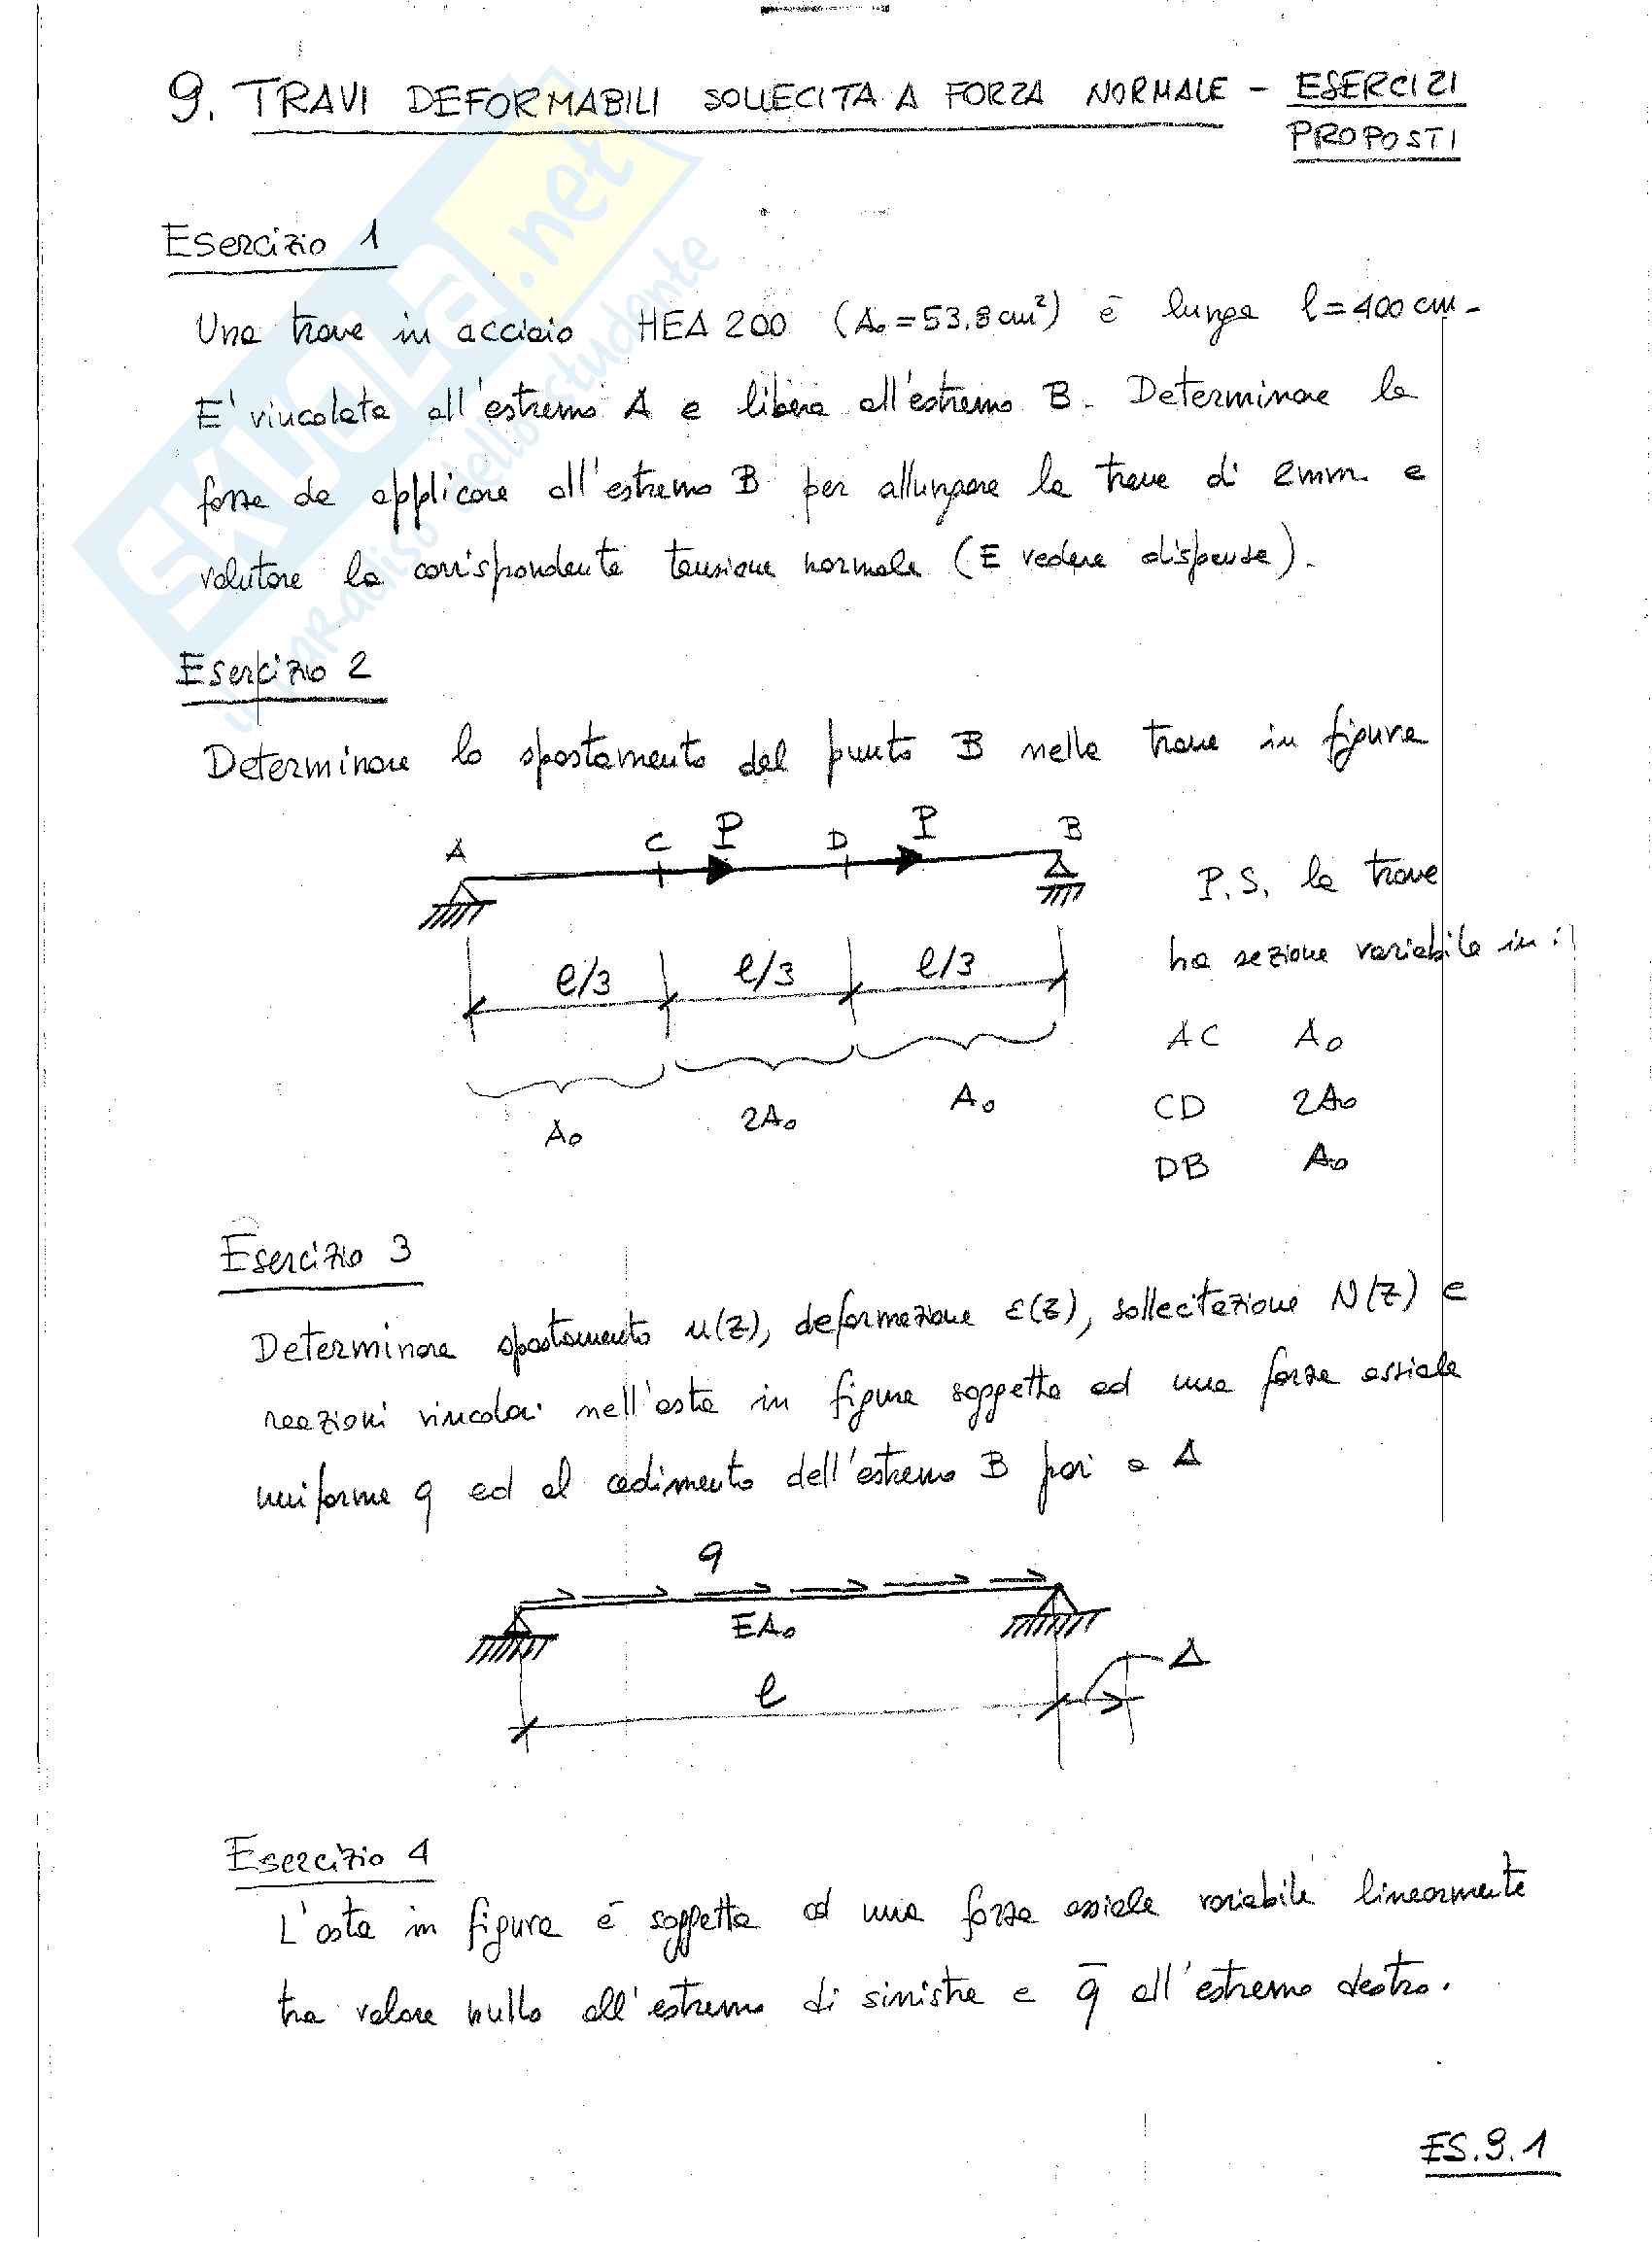 9. TRAVI DEFORMABILI SOLLECITA A FORZA NORMALE - ESERCIZI
PROPOSTI
Esercizio 1
Una trave in acciaio HEA 200 (A₀ = 53,8 cm²) è lunga l = 400 cm.
E' vincolata all'estremo A e libera all'estremo B. Determinare la
forza da applicare all'estremo B per allungare la trave di 2mm e
valutare la corrispondente tensione normale (E vedere dispense).
Esercizio 2
Determinare lo spostamento del punto B nella trave in figura
A C P D P B
P.S. la trave
ha sezione variabile in :
l/3 l/3 l/3
AC A₀
CD 2A₀
DB A₀
A₀ 2A₀ A₀
Esercizio 3
Determinare spostamento u(z), deformazione ε(z), sollecitazione N(z) e
reazioni vincolari nell'asta in figura soggetta ad una forza assiale
uniforme q ed al cedimento dell'estremo B pari a Δ
q
EA₀
l Δ
Esercizio 4
L'asta in figura è soggetta ad una forza assiale variabile linearmente
tra valore nullo all'estremo di sinistra e q̄ all'estremo destro.
ES.9.1
SKUOLA.net
il paradiso dello studente